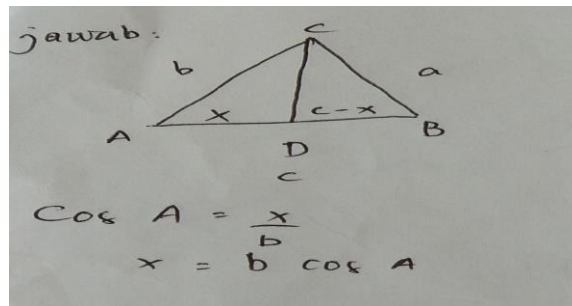 jawab:
C
b a
x c-x
A B
D
c
Cos A = x/b
x = b cos A